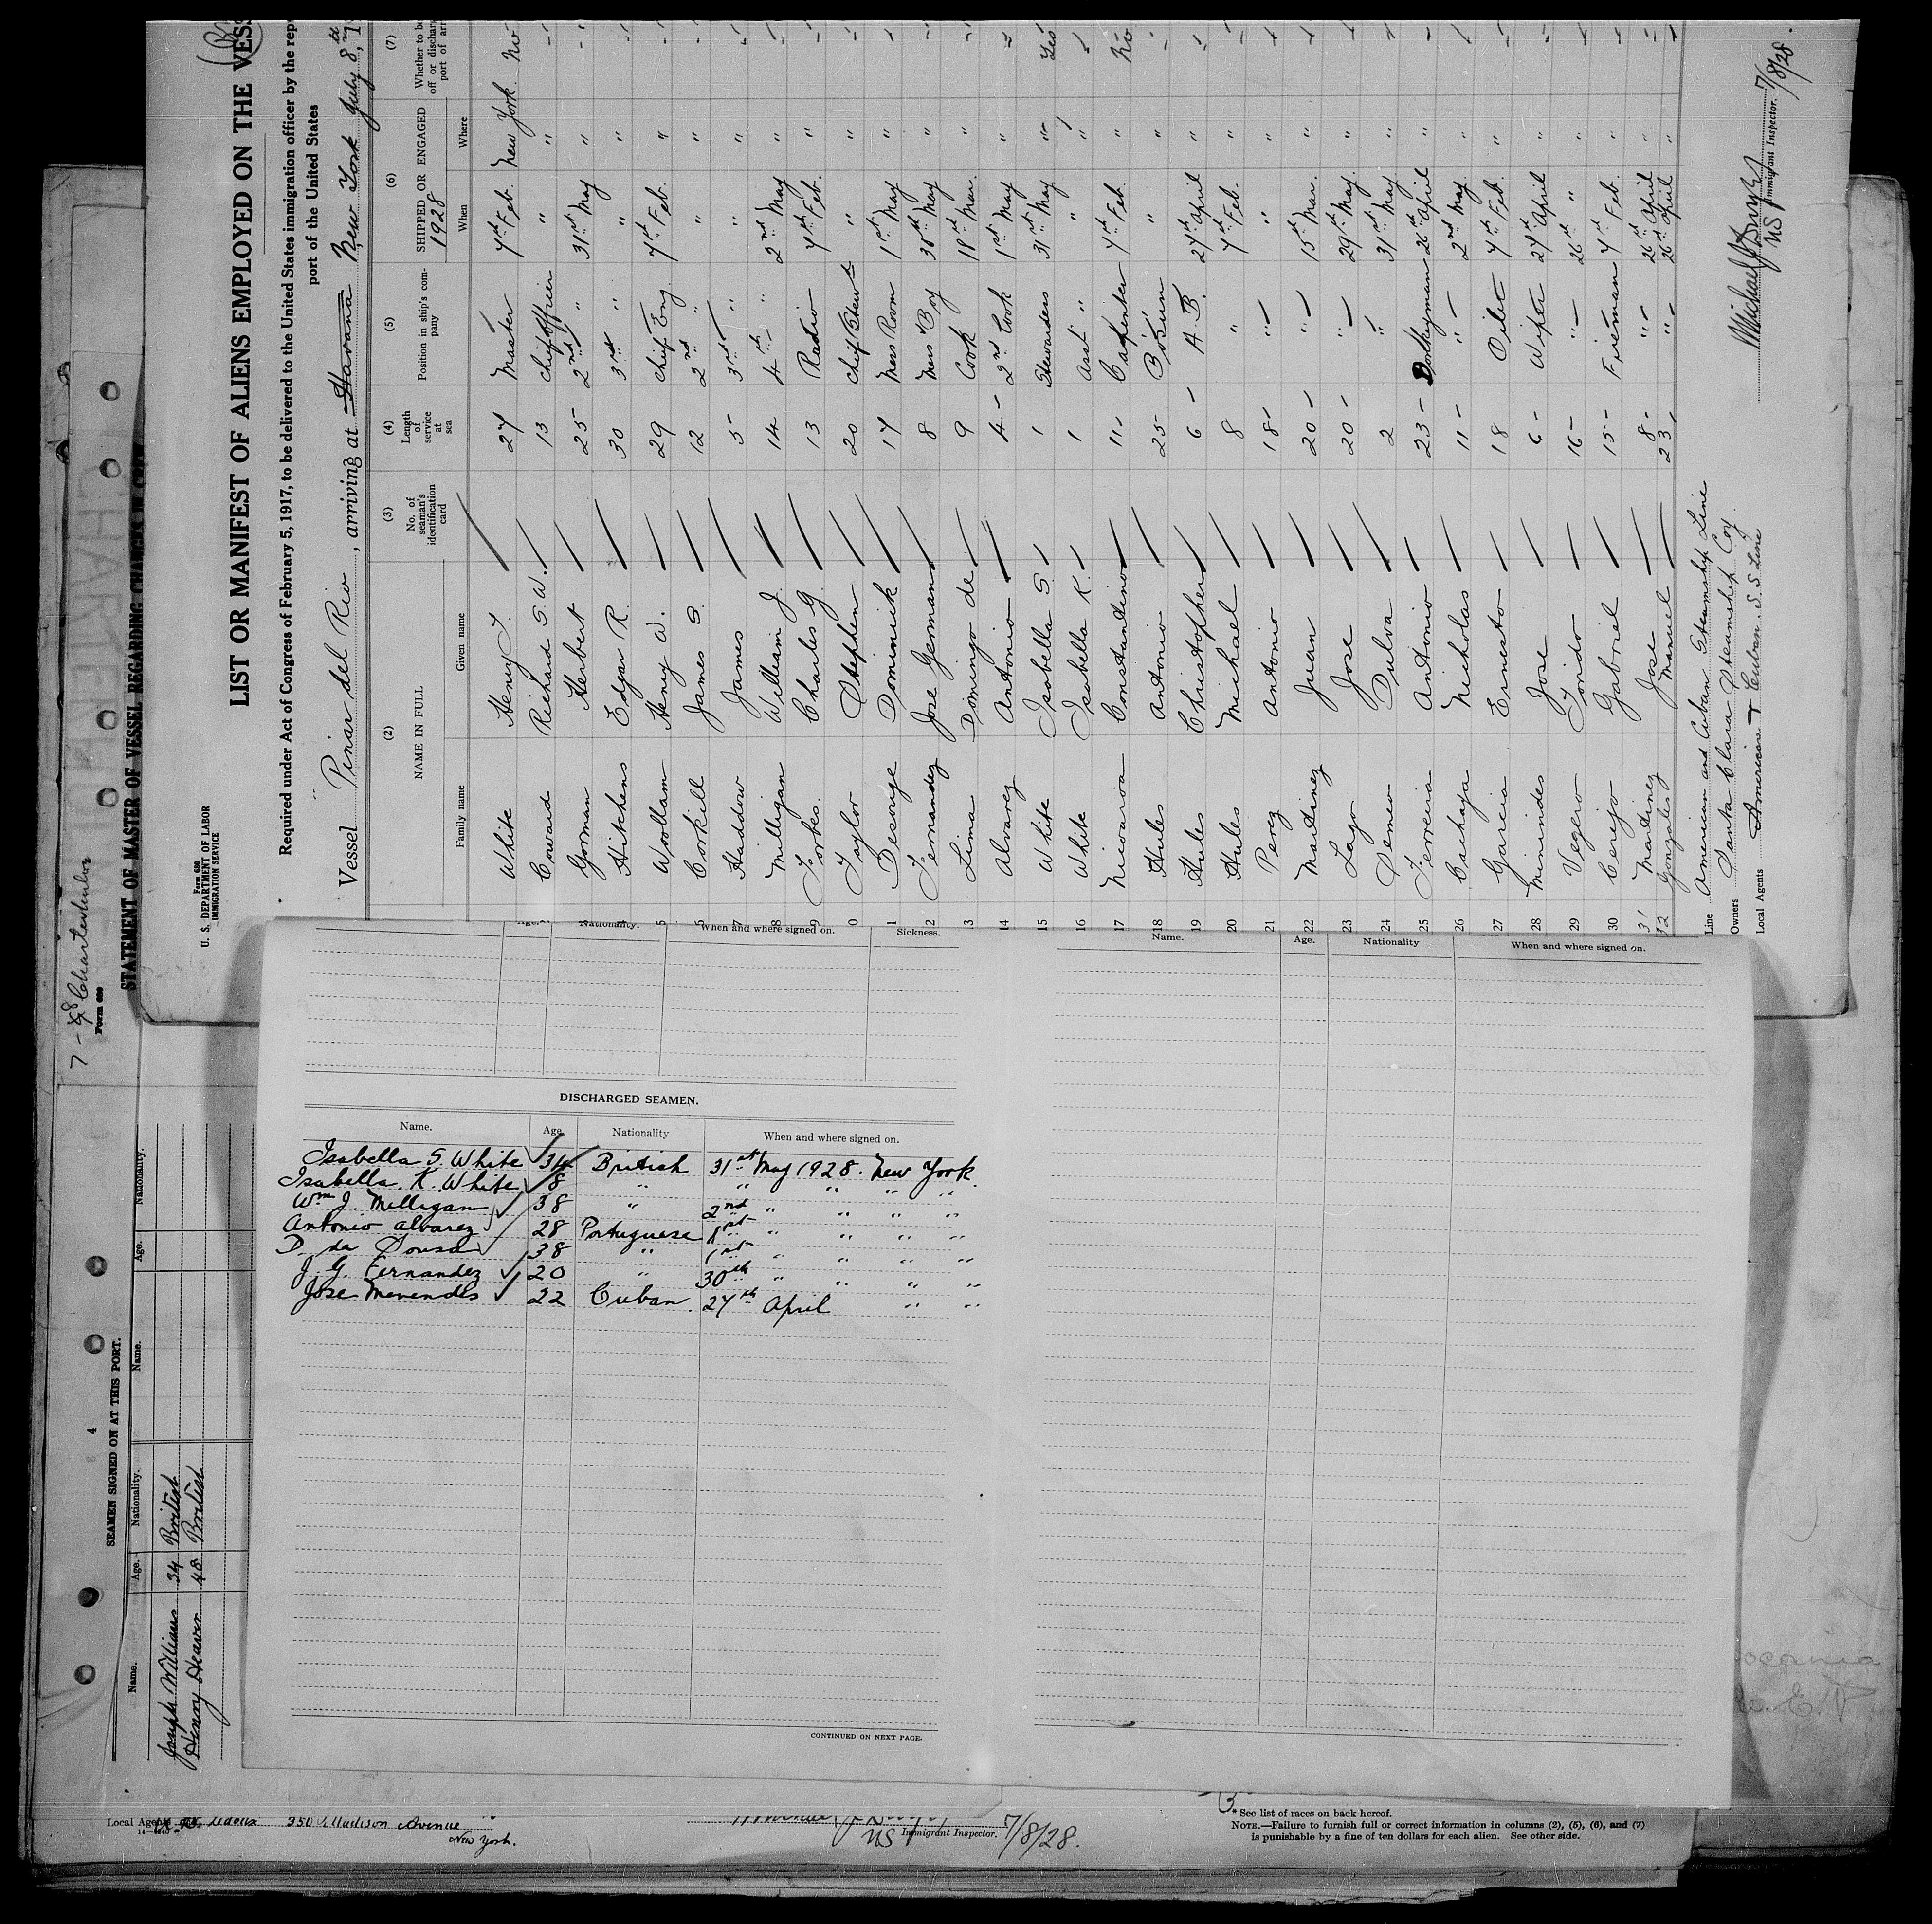 Form 680
U. S. DEPARTMENT OF LABOR
IMMIGRATION SERVICE
LIST OR MANIFEST OF ALIENS EMPLOYED ON THE VES
Required under Act of Congress of February 5, 1917, to be delivered to the United States immigration officer by the rep
port of the United States
Vessel Pinar del Rio, arriving at Havana New York July 8th, 1
(2) (3) (4) (5) (6) (7)
NAME IN FULL No. of seaman's identification card Length of service at sea Position in ship's company SHIPPED OR ENGAGED 1928 Whether to be
off or dischar
port of arr
Family name Given name When Where
White Henry T. 27 Master 7th Feb. New York No
Coward Richard S. W. 13 Chief Officer " "
Gorman Herbert 25 2nd " 31st May "
4 Hitchens Edgar R. 30 3rd " " "
5 Woollam Henry W. 29 Chief Eng. 7th Feb. "
6 Corkill James S. 12 2nd " " "
7 Haddow James 5 3rd " " "
8 Milligan William J. 14 4th " 2nd May "
9 Forbes. Charles G. 13 Radio 7th Feb. "
0 Taylor Stephen 20 Chief Stewd " "
1 Desouge Dominick 17 Mess Room 1st May "
12 Fernandez Jose Germano 8 Mess Boy 30th May "
13 Lima Domingo de 9 Cook 18th Mar. "
14 Alvarez Antonio 4 2nd Cook 1st May "
15 White Isabella S. 1 Stewardess 31st May " Yes
16 White Isabella K. 1 Asst " " "
17 Nicoaroa Constantino 11 Carpenter 7th Feb. " No
18 Hules Antonio 25 Bo'sun " "
19 Hules Christopher 6 A. B. 27th April "
20 Hules Michael 8 " 7th Feb. "
21 Perez Antonio 18 " " "
22 Martinez Juan 20 " 15th Mar. "
23 Lago Jose 20 " 29th May "
24 Semew Dulva 2 " 31st May "
25 Ferreria Antonio 23 Donkeyman 26th April "
26 Nicholas 11 " 2nd May "
27 Garcia Ernesto 18 Oiler 7th Feb. "
28 Minindes Jose 6 Wiper 27th April "
29 16 " 26th " "
30 Cerejo Gabriel 15 Fireman 7th Feb. "
31 Martinez Jose 8 " 26th April "
32 Gonzales Manuel 23 " 26th April "
Line American and Cuban Steamship Line
Owners Santa Clara Steamship Coy.
Local Agents American & Cuban S. S. Line
US Immigrant Inspector. 7/8/28.
Form 689
STATEMENT OF MASTER OF VESSEL REGARDING CHANGES IN CREW
Age. Nationality. When and where signed on. Sickness.
Name. Age. Nationality When and where signed on.
DISCHARGED SEAMEN.
Name. Age. Nationality When and where signed on.
Isabella S. White 34 British 31st May 1928. New York
Isabella. K. White 8 " " " " "
Wm J. Milligan 38 " 2nd " " " "
Antonio Alvarez 28 Portuguese 1st " " " "
D. da Sousa 38 " 1st " " " "
J. G. Fernandez 20 " 30th " " " "
Jose Menendes 22 Cuban 27th April " "
CONTINUED ON NEXT PAGE.
4
SEAMEN SIGNED ON AT THIS PORT.
Name. Age. Nationality. Name. Age. Nationality.
Joseph Williams 34 British
Henry Heaven 48 British
Local Agents 350 Madison Avenue
New York.
US Immigrant Inspector. 7/8/28.
* See list of races on back hereof.
NOTE.—Failure to furnish full or correct information in columns (2), (5), (6), and (7)
is punishable by a fine of ten dollars for each alien. See other side.